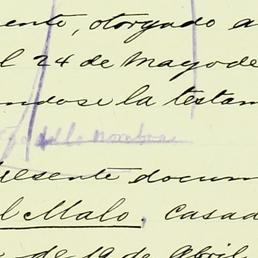 ente, otorgado a
l 24 de Mayo de
ndose la testam
de la Nombra
resente docum
l Malo, casad
de 19 de Abril